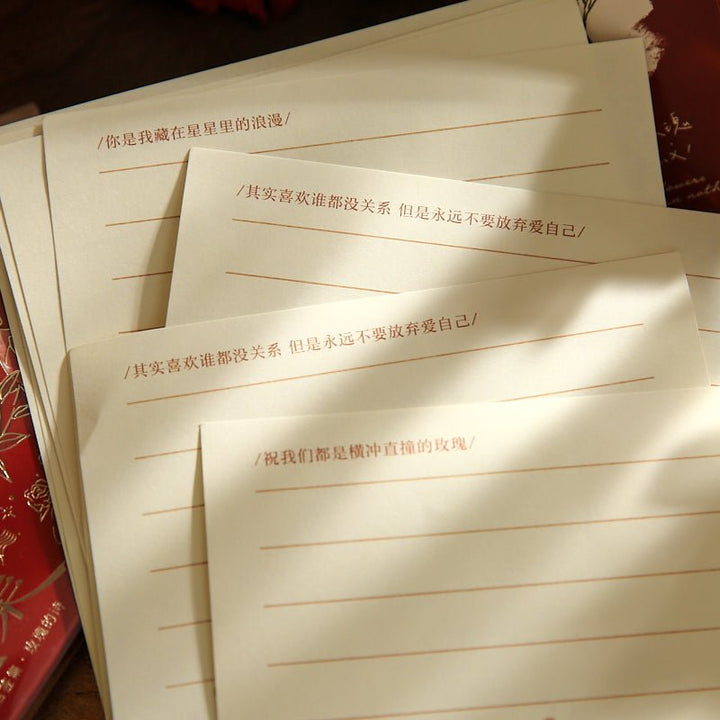 /你是我藏在星星里的浪漫/
/其实喜欢谁都没关系 但是永远不要放弃爱自己/
/其实喜欢谁都没关系 但是永远不要放弃爱自己/
/祝我们都是横冲直撞的玫瑰/
玫瑰的诗